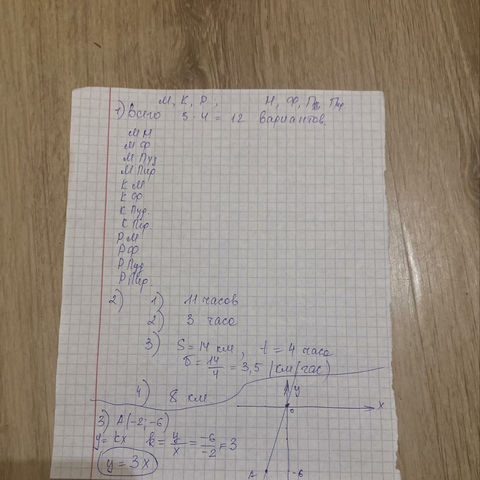 М, К, Р, Н, Ф, Пуд, Пир
1) Всего 3 · 4 = 12 вариантов,
М Н
М Ф
М Пуд
М Пир
К М
К Ф
К Пуд.
К Пир.
Р М
Р Ф
Р Пуд
Р Пир.
2) 1) 11 часов
2) 3 часа
3) S = 14 км, t = 4 часа
v = 14/4 = 3,5 (км/час)
4) 8 км
3) A(-2; -6)
y = kx k = y/x = -6/-2 = 3
y = 3x
y
x
0
A
-6